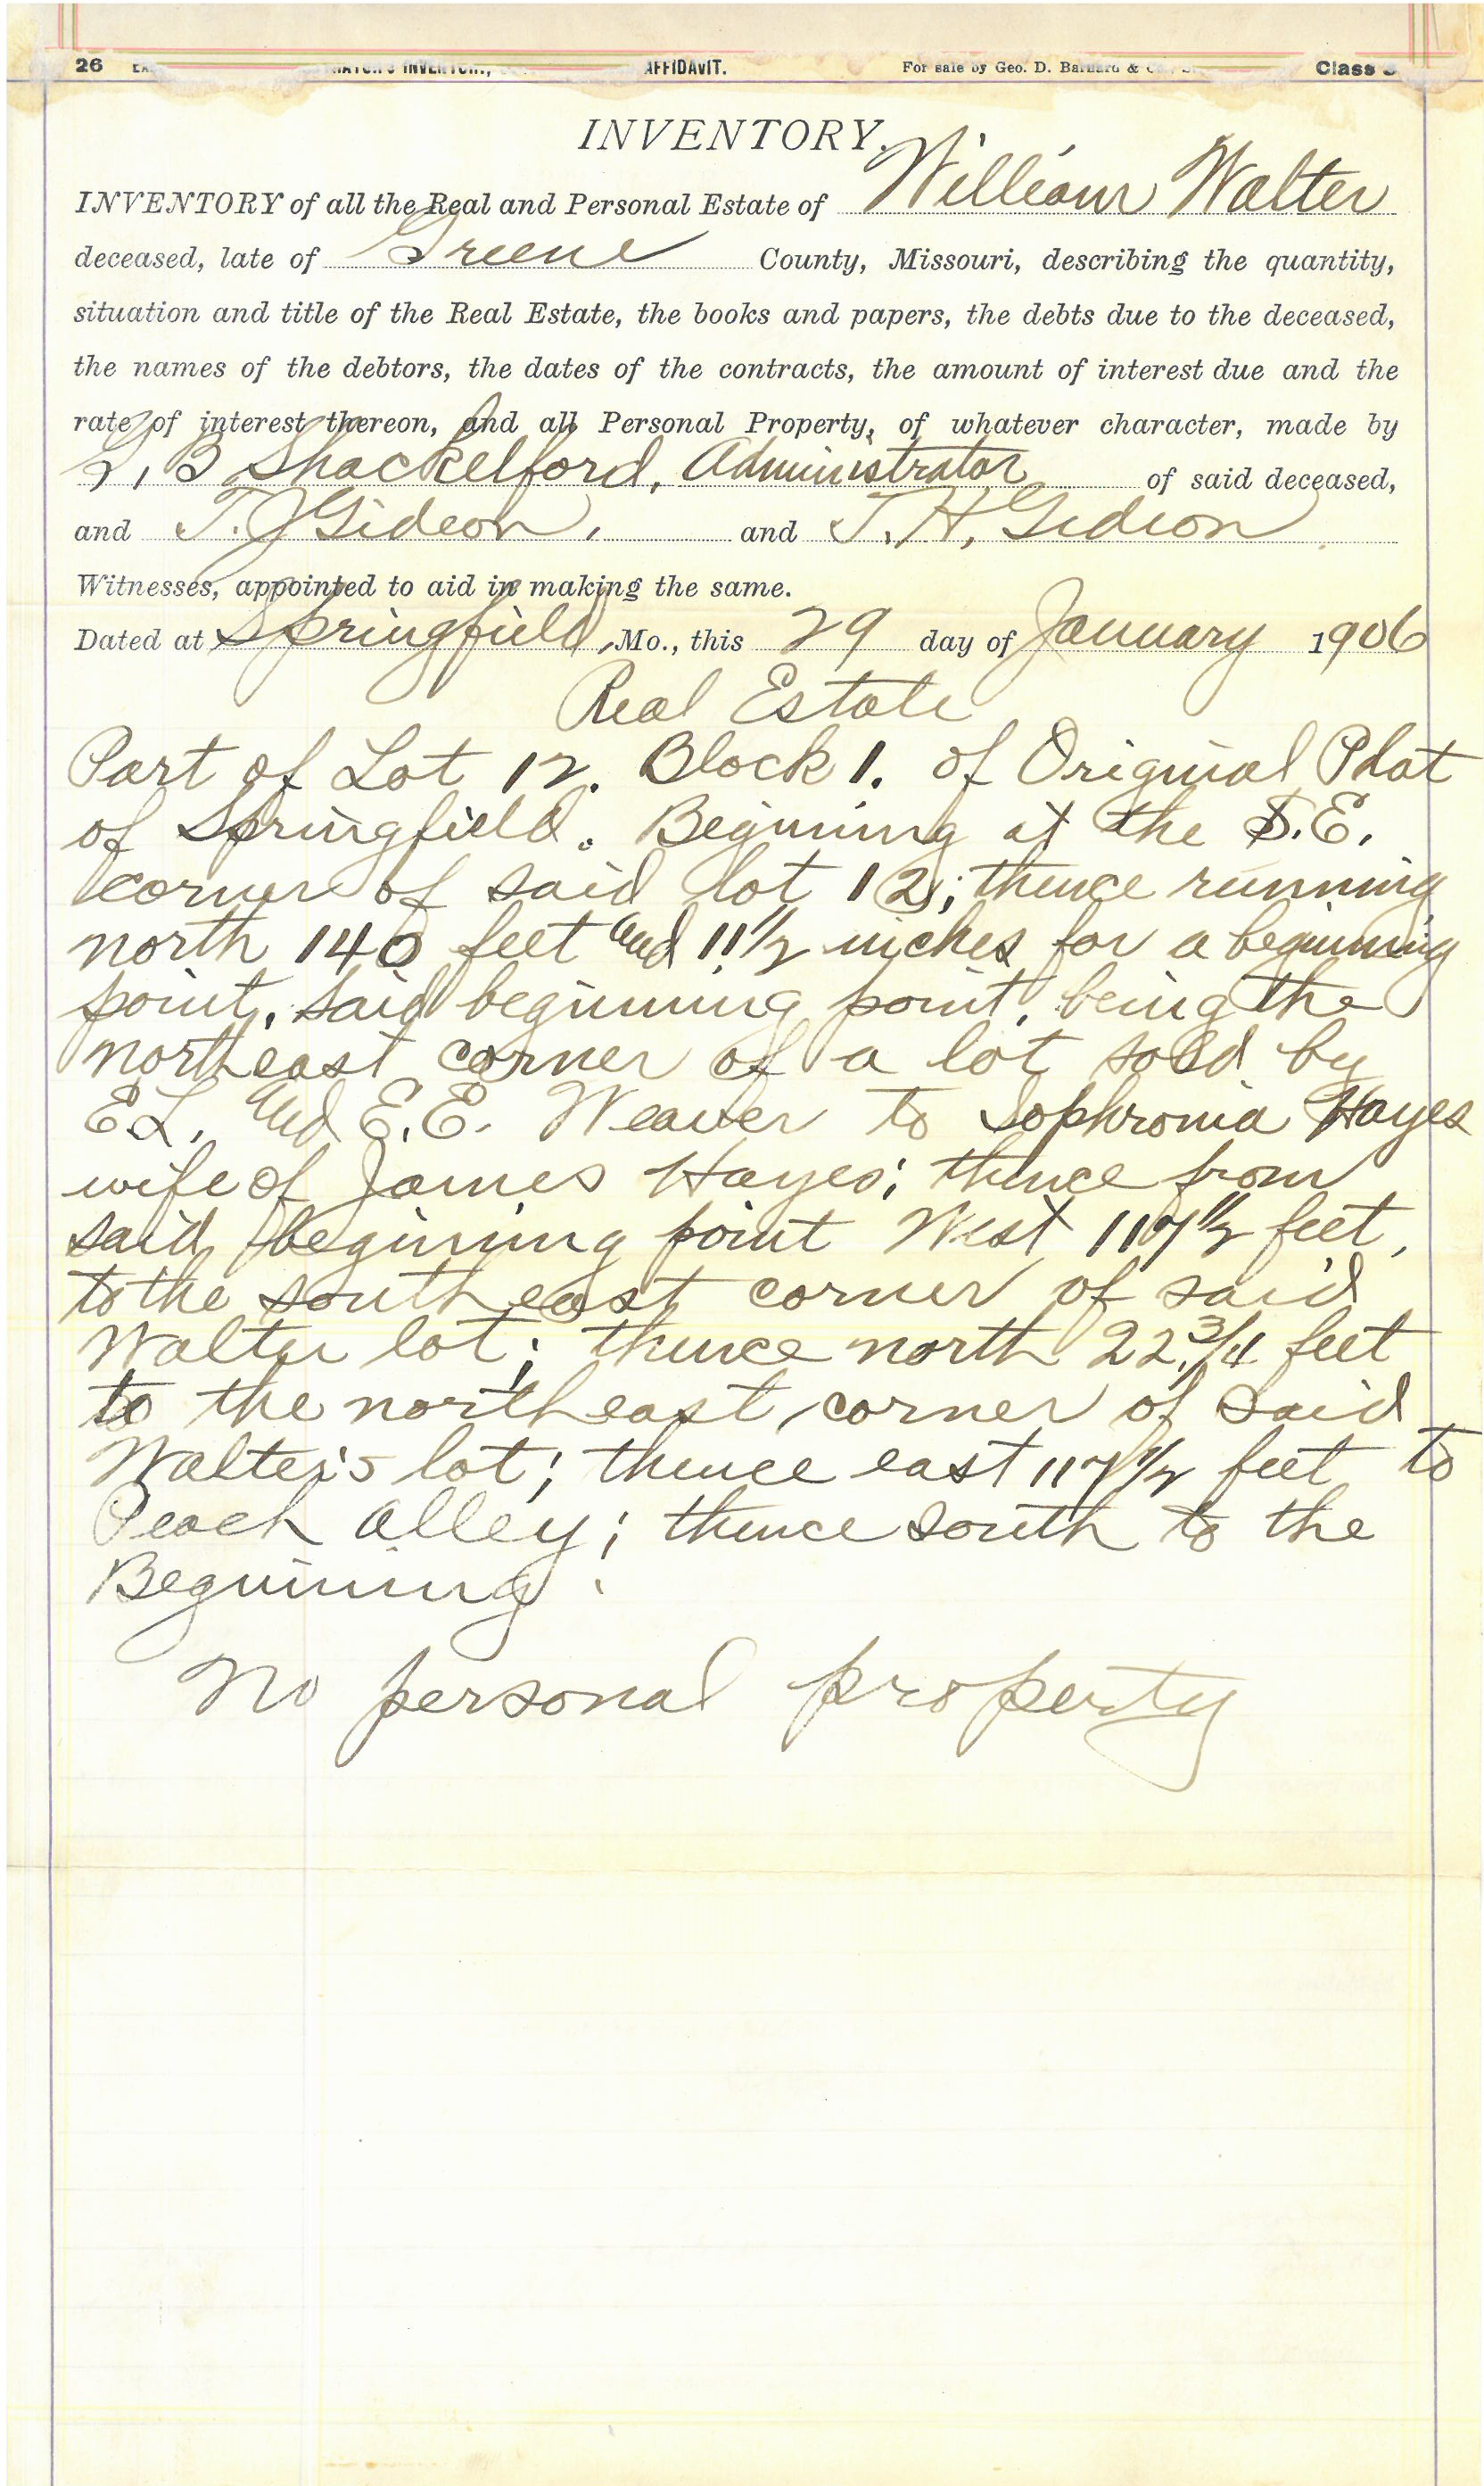 26 AFFIDAVIT. For sale by Geo. D. Barnard & Class
INVENTORY.
INVENTORY of all the Real and Personal Estate of William Walter
deceased, late of Greene County, Missouri, describing the quantity,
situation and title of the Real Estate, the books and papers, the debts due to the deceased,
the names of the debtors, the dates of the contracts, the amount of interest due and the
rate of interest thereon, and all Personal Property, of whatever character, made by
B Shackelford, Administrator of said deceased,
and T. J Gideon, and T. H, Gideon
Witnesses, appointed to aid in making the same.
Dated at Springfield, Mo., this 29 day of January 1906
Real Estate
Part of Lot 12. Block 1. of Original Plat
of Springfield. Beginning at the S.E.
corner of said lot 12; thence running
north 140 feet and 11 1/2 inches for a beginning
point, said beginning point, being the
northeast corner of a lot sold by
E.L. and E.E. Weaver to Sophronia Hayes
wife of James Hayes; thence from
said beginning point West 117 1/2 feet,
to the south east corner of said
Walter lot; thence north 22 3/4 feet
to the north east corner of said
Walter's lot; thence east 117 1/2 feet to
Peach alley; thence south to the
Beginning.
No personal property